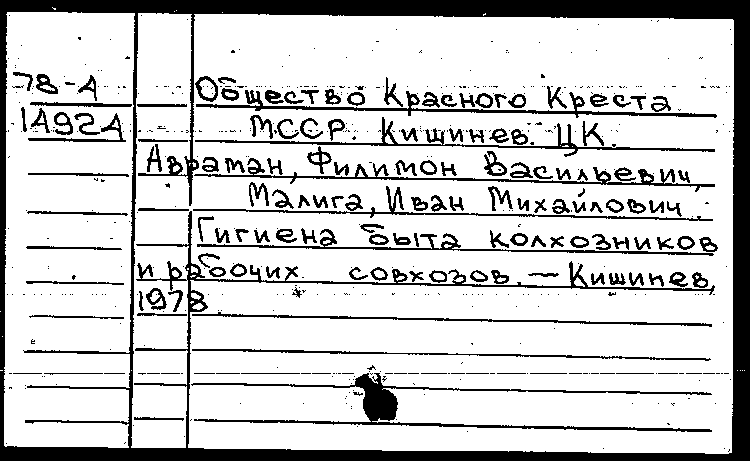 78-А Общество Красного Креста
14924 МССР. Кишинев. ЦК.
Авраман, Филимон Васильевич,
Малига, Иван Михайлович.
Гигиена быта колхозников
и рабочих совхозов. — Кишинев,
1978